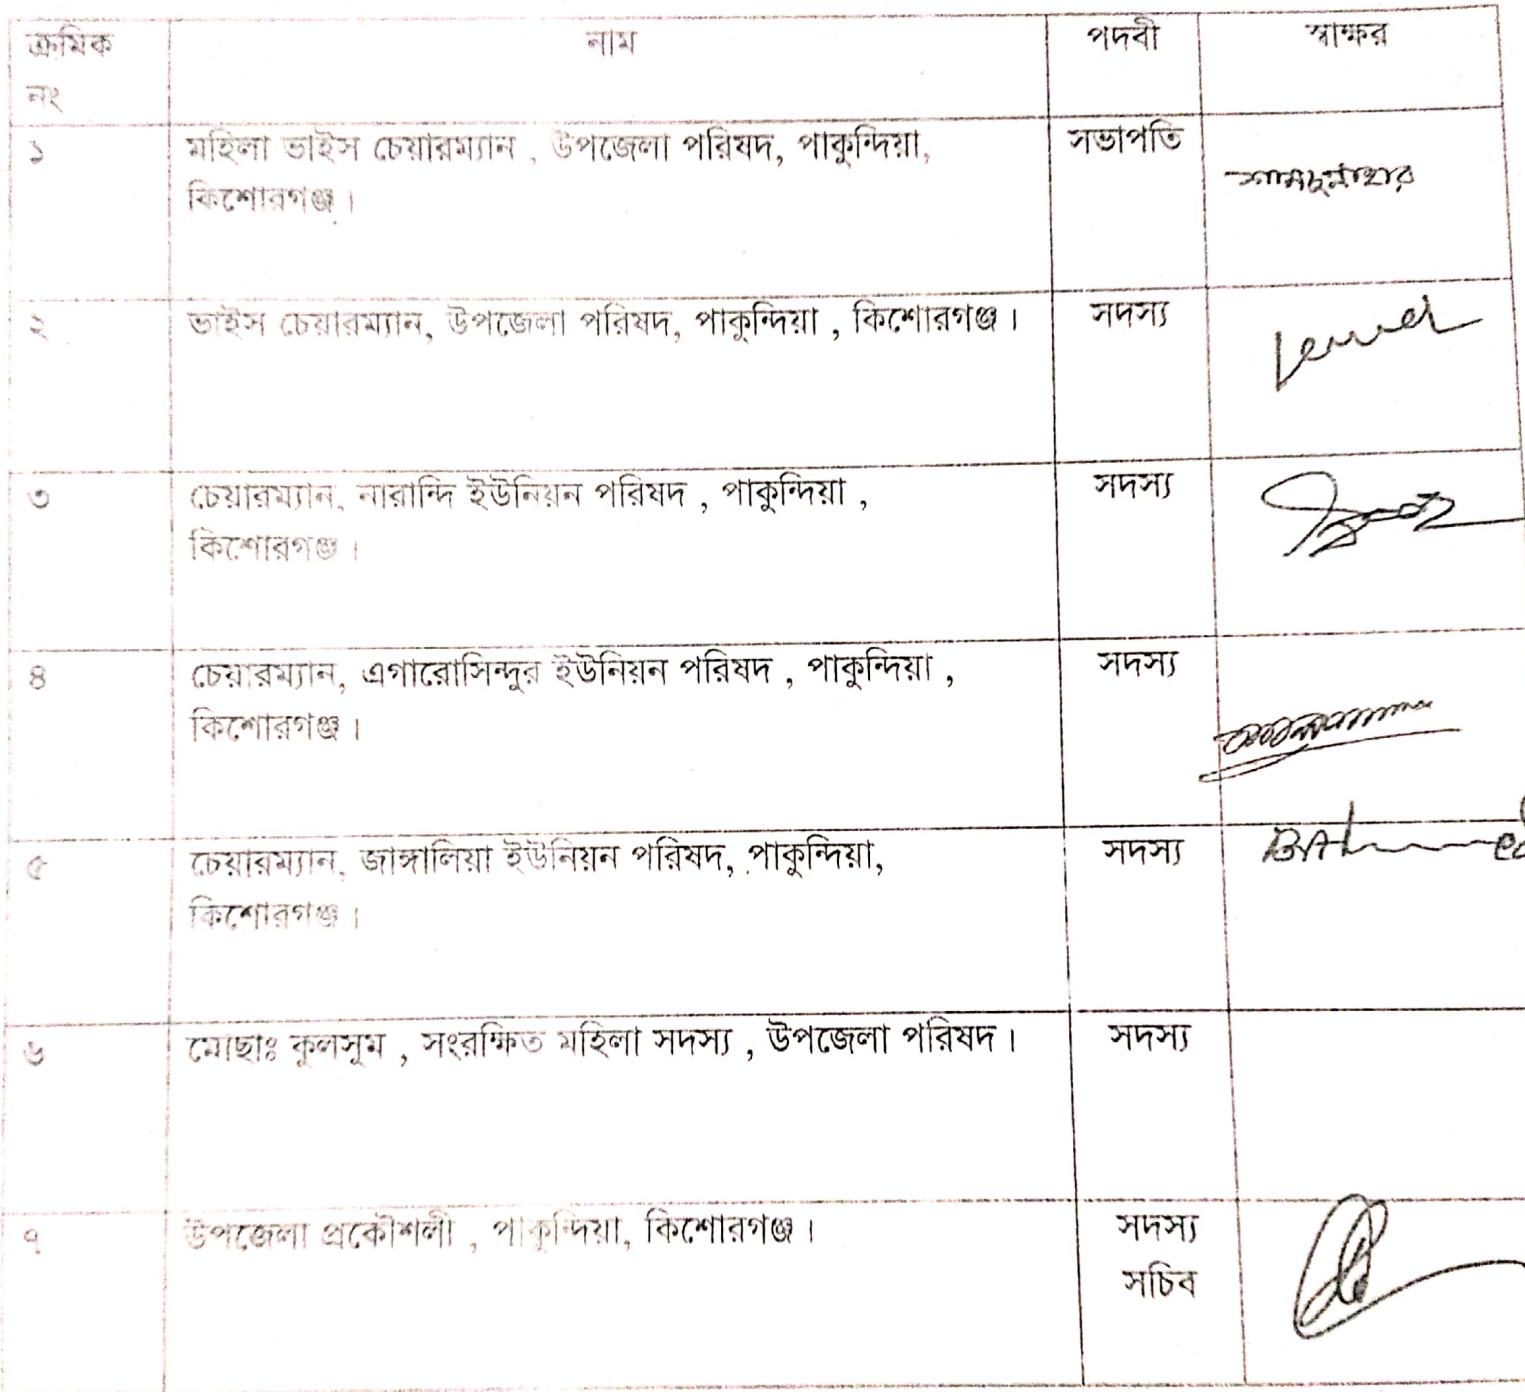 ক্রমিক নাম পদবী স্বাক্ষর
নং
১ মহিলা ভাইস চেয়ারম্যান , উপজেলা পরিষদ, পাকুন্দিয়া, সভাপতি
কিশোরগঞ্জ।
২ ভাইস চেয়ারম্যান, উপজেলা পরিষদ, পাকুন্দিয়া , কিশোরগঞ্জ। সদস্য
৩ চেয়ারম্যান, নারান্দি ইউনিয়ন পরিষদ , পাকুন্দিয়া , সদস্য
কিশোরগঞ্জ।
৪ চেয়ারম্যান, এগারোসিন্দুর ইউনিয়ন পরিষদ , পাকুন্দিয়া , সদস্য
কিশোরগঞ্জ।
৫ চেয়ারম্যান, জাঙ্গালিয়া ইউনিয়ন পরিষদ, পাকুন্দিয়া, সদস্য
কিশোরগঞ্জ।
৬ মোছাঃ কুলসুম , সংরক্ষিত মহিলা সদস্য , উপজেলা পরিষদ। সদস্য
৭ উপজেলা প্রকৌশলী , পাকুন্দিয়া, কিশোরগঞ্জ। সদস্য
সচিব